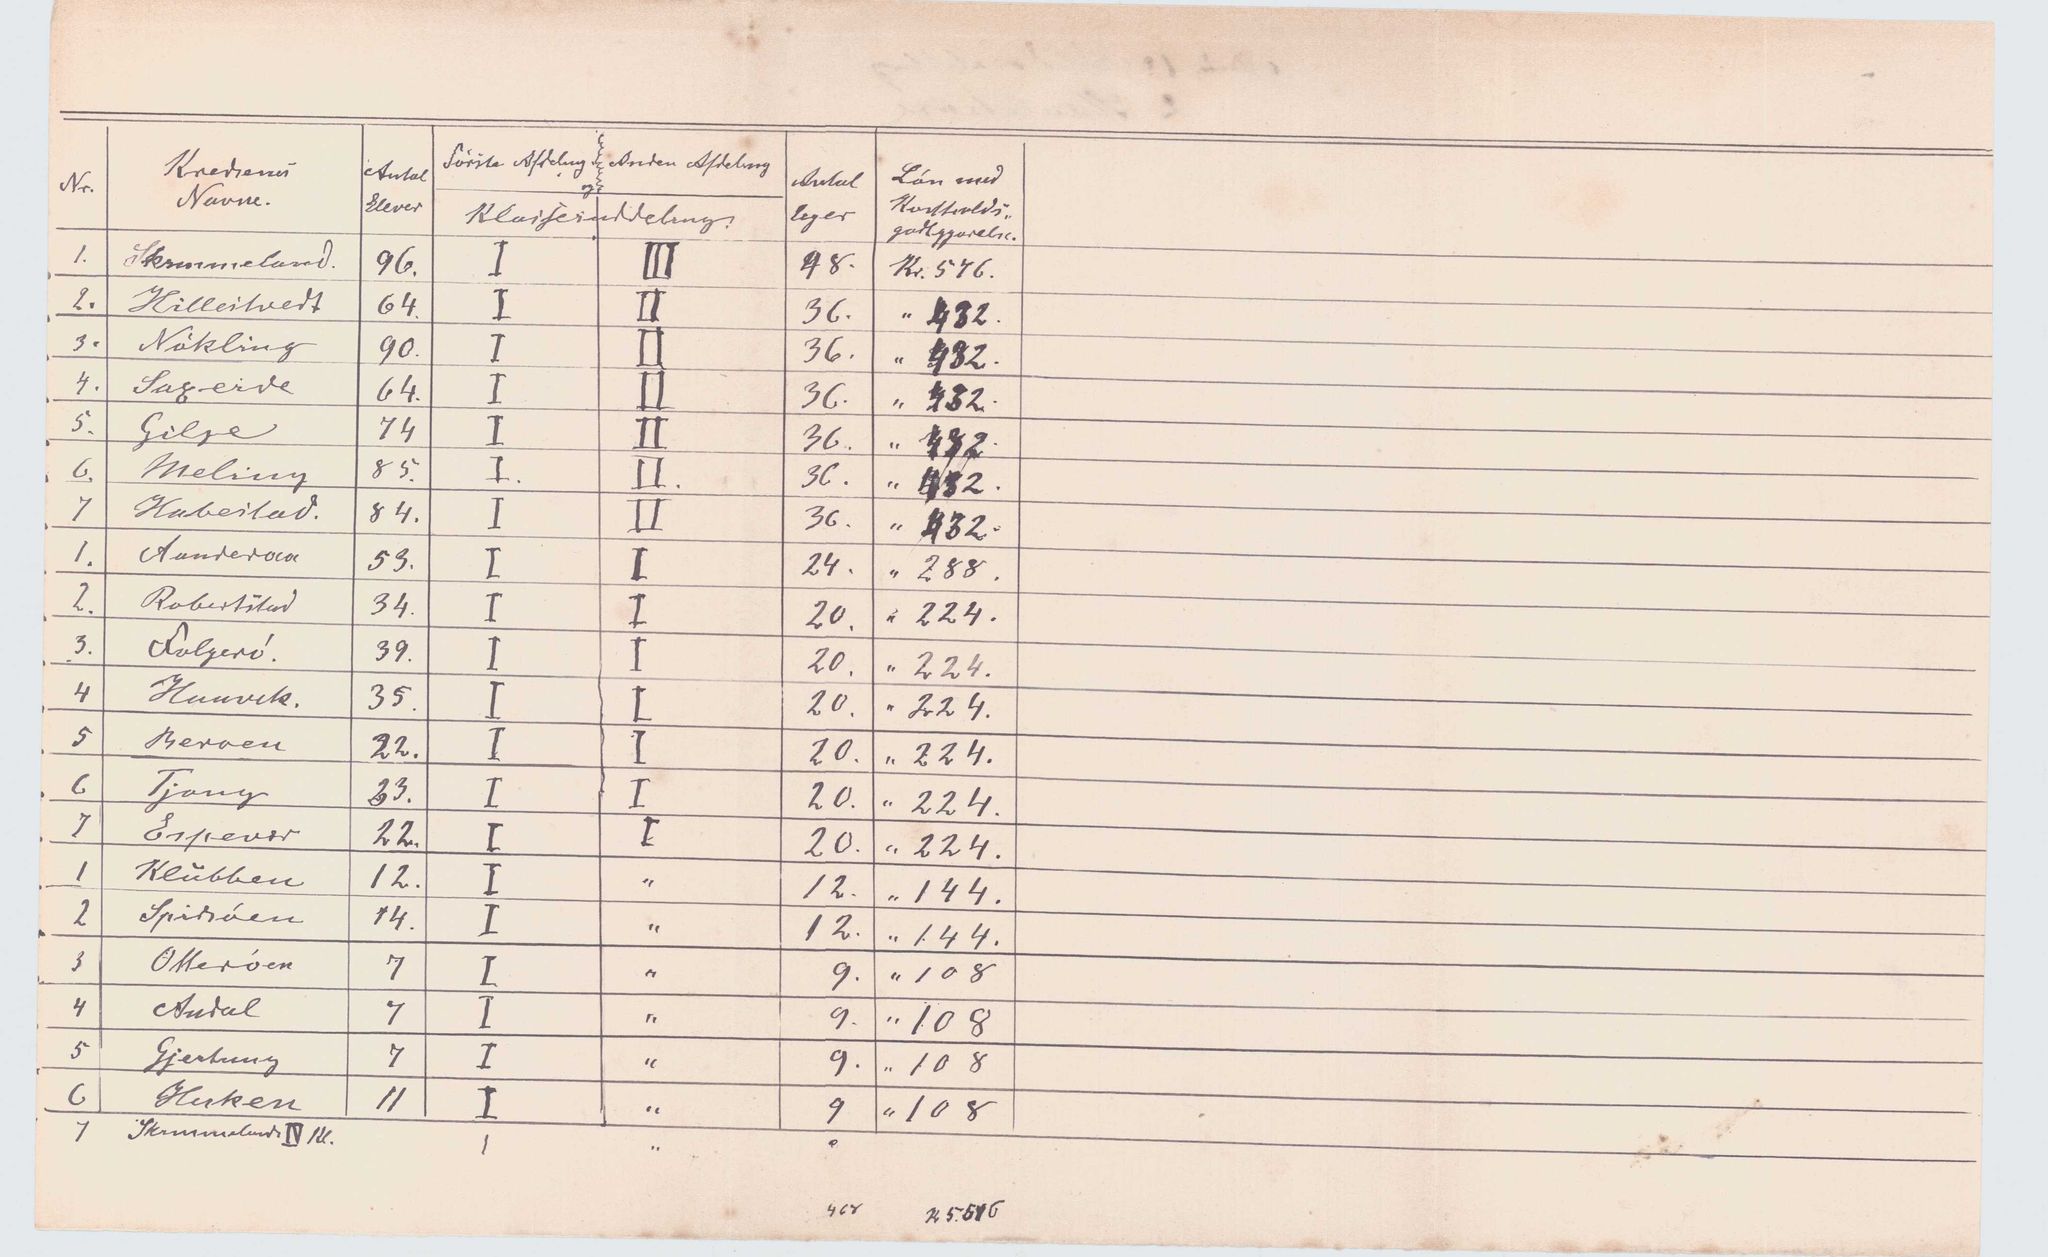 Nr. Kredsenes Navne. Antal Elever Første Afdeling og Anden Afdeling Klasseinddeling. Antal Uger Løn med Kostholds- godtgjørelse.
1. Skrummeland. 96. I III 48. Kr. 576.
2. Hillestvedt 64. I II 36. " 432.
3. Nökling 90. I II 36. " 432.
4. Sageide 64. I II 36. " 432.
5. Gilje 74 I II 36. " 432.
6. Meling 85. I. II. 36. " 432.
7 Habestad. 84. I II 36. " 432.
1. Aanderaa 53. I I 24. " 288.
2. Robertstad 34. I I 20. " 224.
3. Folgerö. 39. I I 20. " 224.
4 Haavik. 35. I I 20. " 224.
5 Beroen 22. I I 20. " 224.
6 Tjong 23. I I 20. " 224.
7 Espevær 22. I I 20. " 224.
1 Klübben 12. I " 12. " 144.
2 Spidsöen 14. I " 12. " 144.
3 Otteröen 7 I " 9. " 108
4 Andal 7 I " 9. " 108
5 Gjertung 7 I " 9. " 108
6 Husken 11 I " 9 " 108
7 Skrummelands IV Kl. I "
468